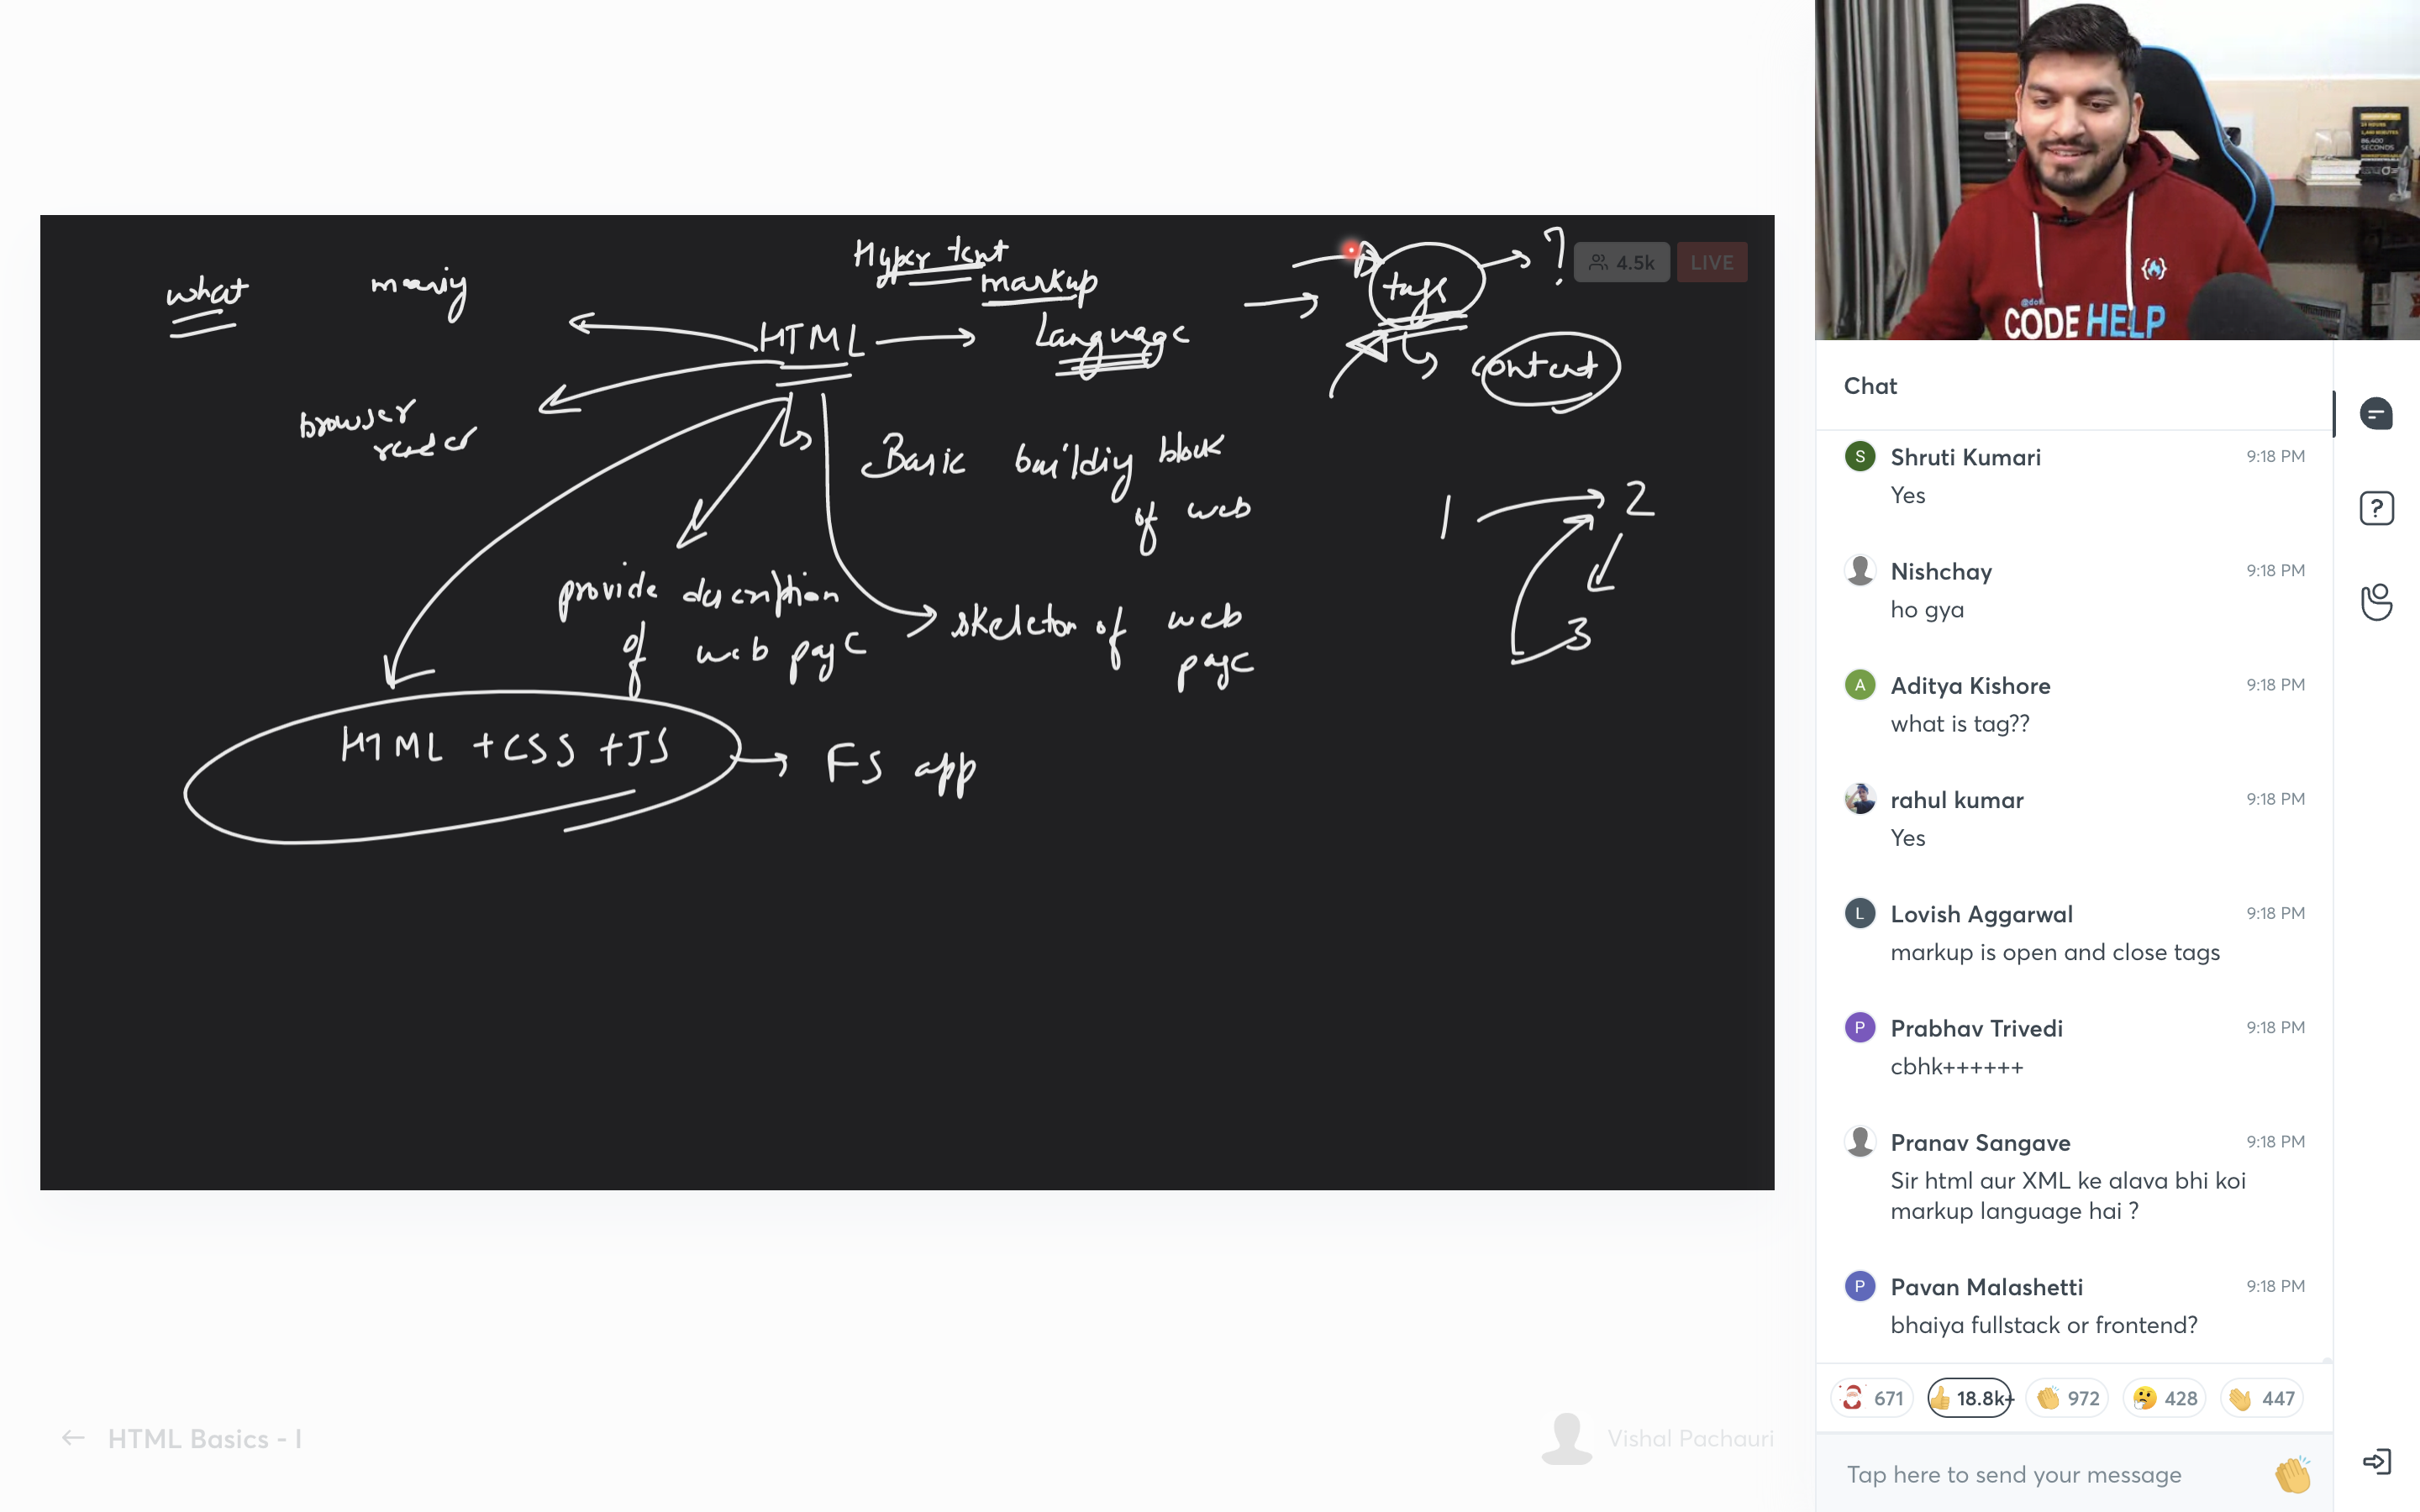 what
meaning
Hyper text
markup
Language
HTML
tags
?
content
4.5k
LIVE
browser
render
Basic building block
of web
1
2
3
provide description
of web page
skeleton of web
page
HTML + CSS + JS
FS app
HTML Basics - I
Vishal Pachauri
CODE HELP
86,400
SECONDS
Chat
S
Shruti Kumari 9:18 PM
Yes
Nishchay 9:18 PM
ho gya
A
Aditya Kishore 9:18 PM
what is tag??
rahul kumar 9:18 PM
Yes
L
Lovish Aggarwal 9:18 PM
markup is open and close tags
P
Prabhav Trivedi 9:18 PM
cbhk++++++
Pranav Sangave 9:18 PM
Sir html aur XML ke alava bhi koi
markup language hai ?
P
Pavan Malashetti 9:18 PM
bhaiya fullstack or frontend?
671 18.8k+ 972 428 447
Tap here to send your message